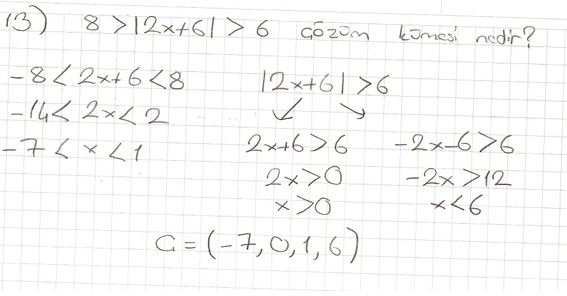 13) 8 > |2x+6| > 6 çözüm kümesi nedir?
-8 < 2x+6 < 8
-14 < 2x < 2
-7 < x < 1
|2x+6| > 6
↙ ↘
2x+6 > 6 -2x-6 > 6
2x > 0 -2x > 12
x > 0 x < 6
Ç = (-7, 0, 1, 6)